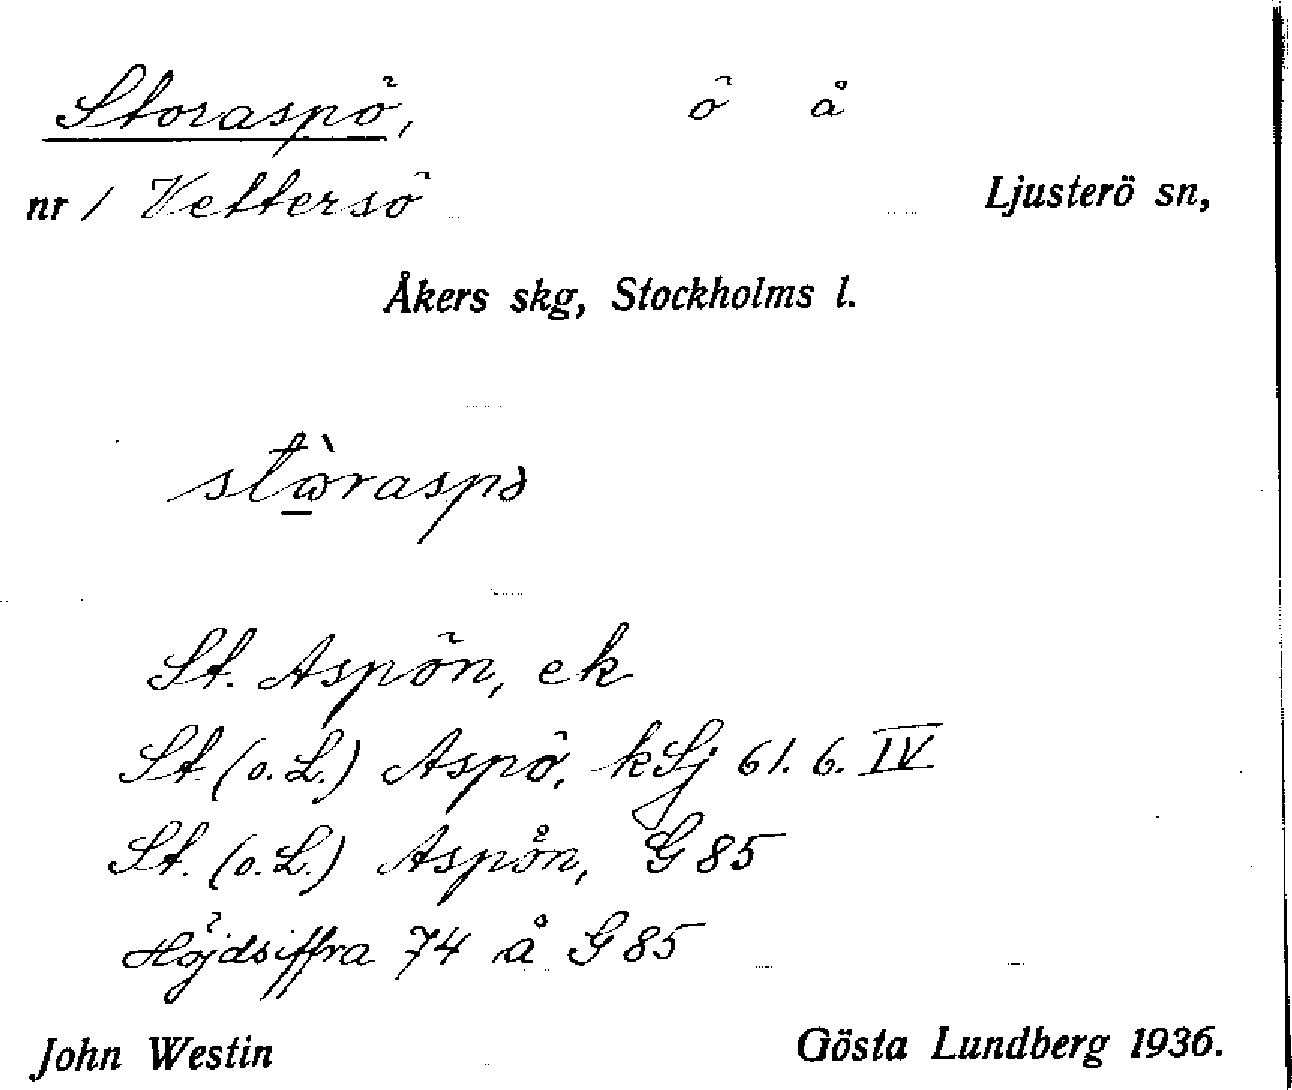 Storaspö, ö å
nr 1 Vettersö Ljusterö sn,
Åkers skg, Stockholms l.
stὼ̱raspə
St. Aspön, ek
St. (o. L.) Aspö, kSj 61. 6. IV
St. (o. L.) Aspön, G 85
Höjdsiffra 74 å G 85
John Westin Gösta Lundberg 1936.